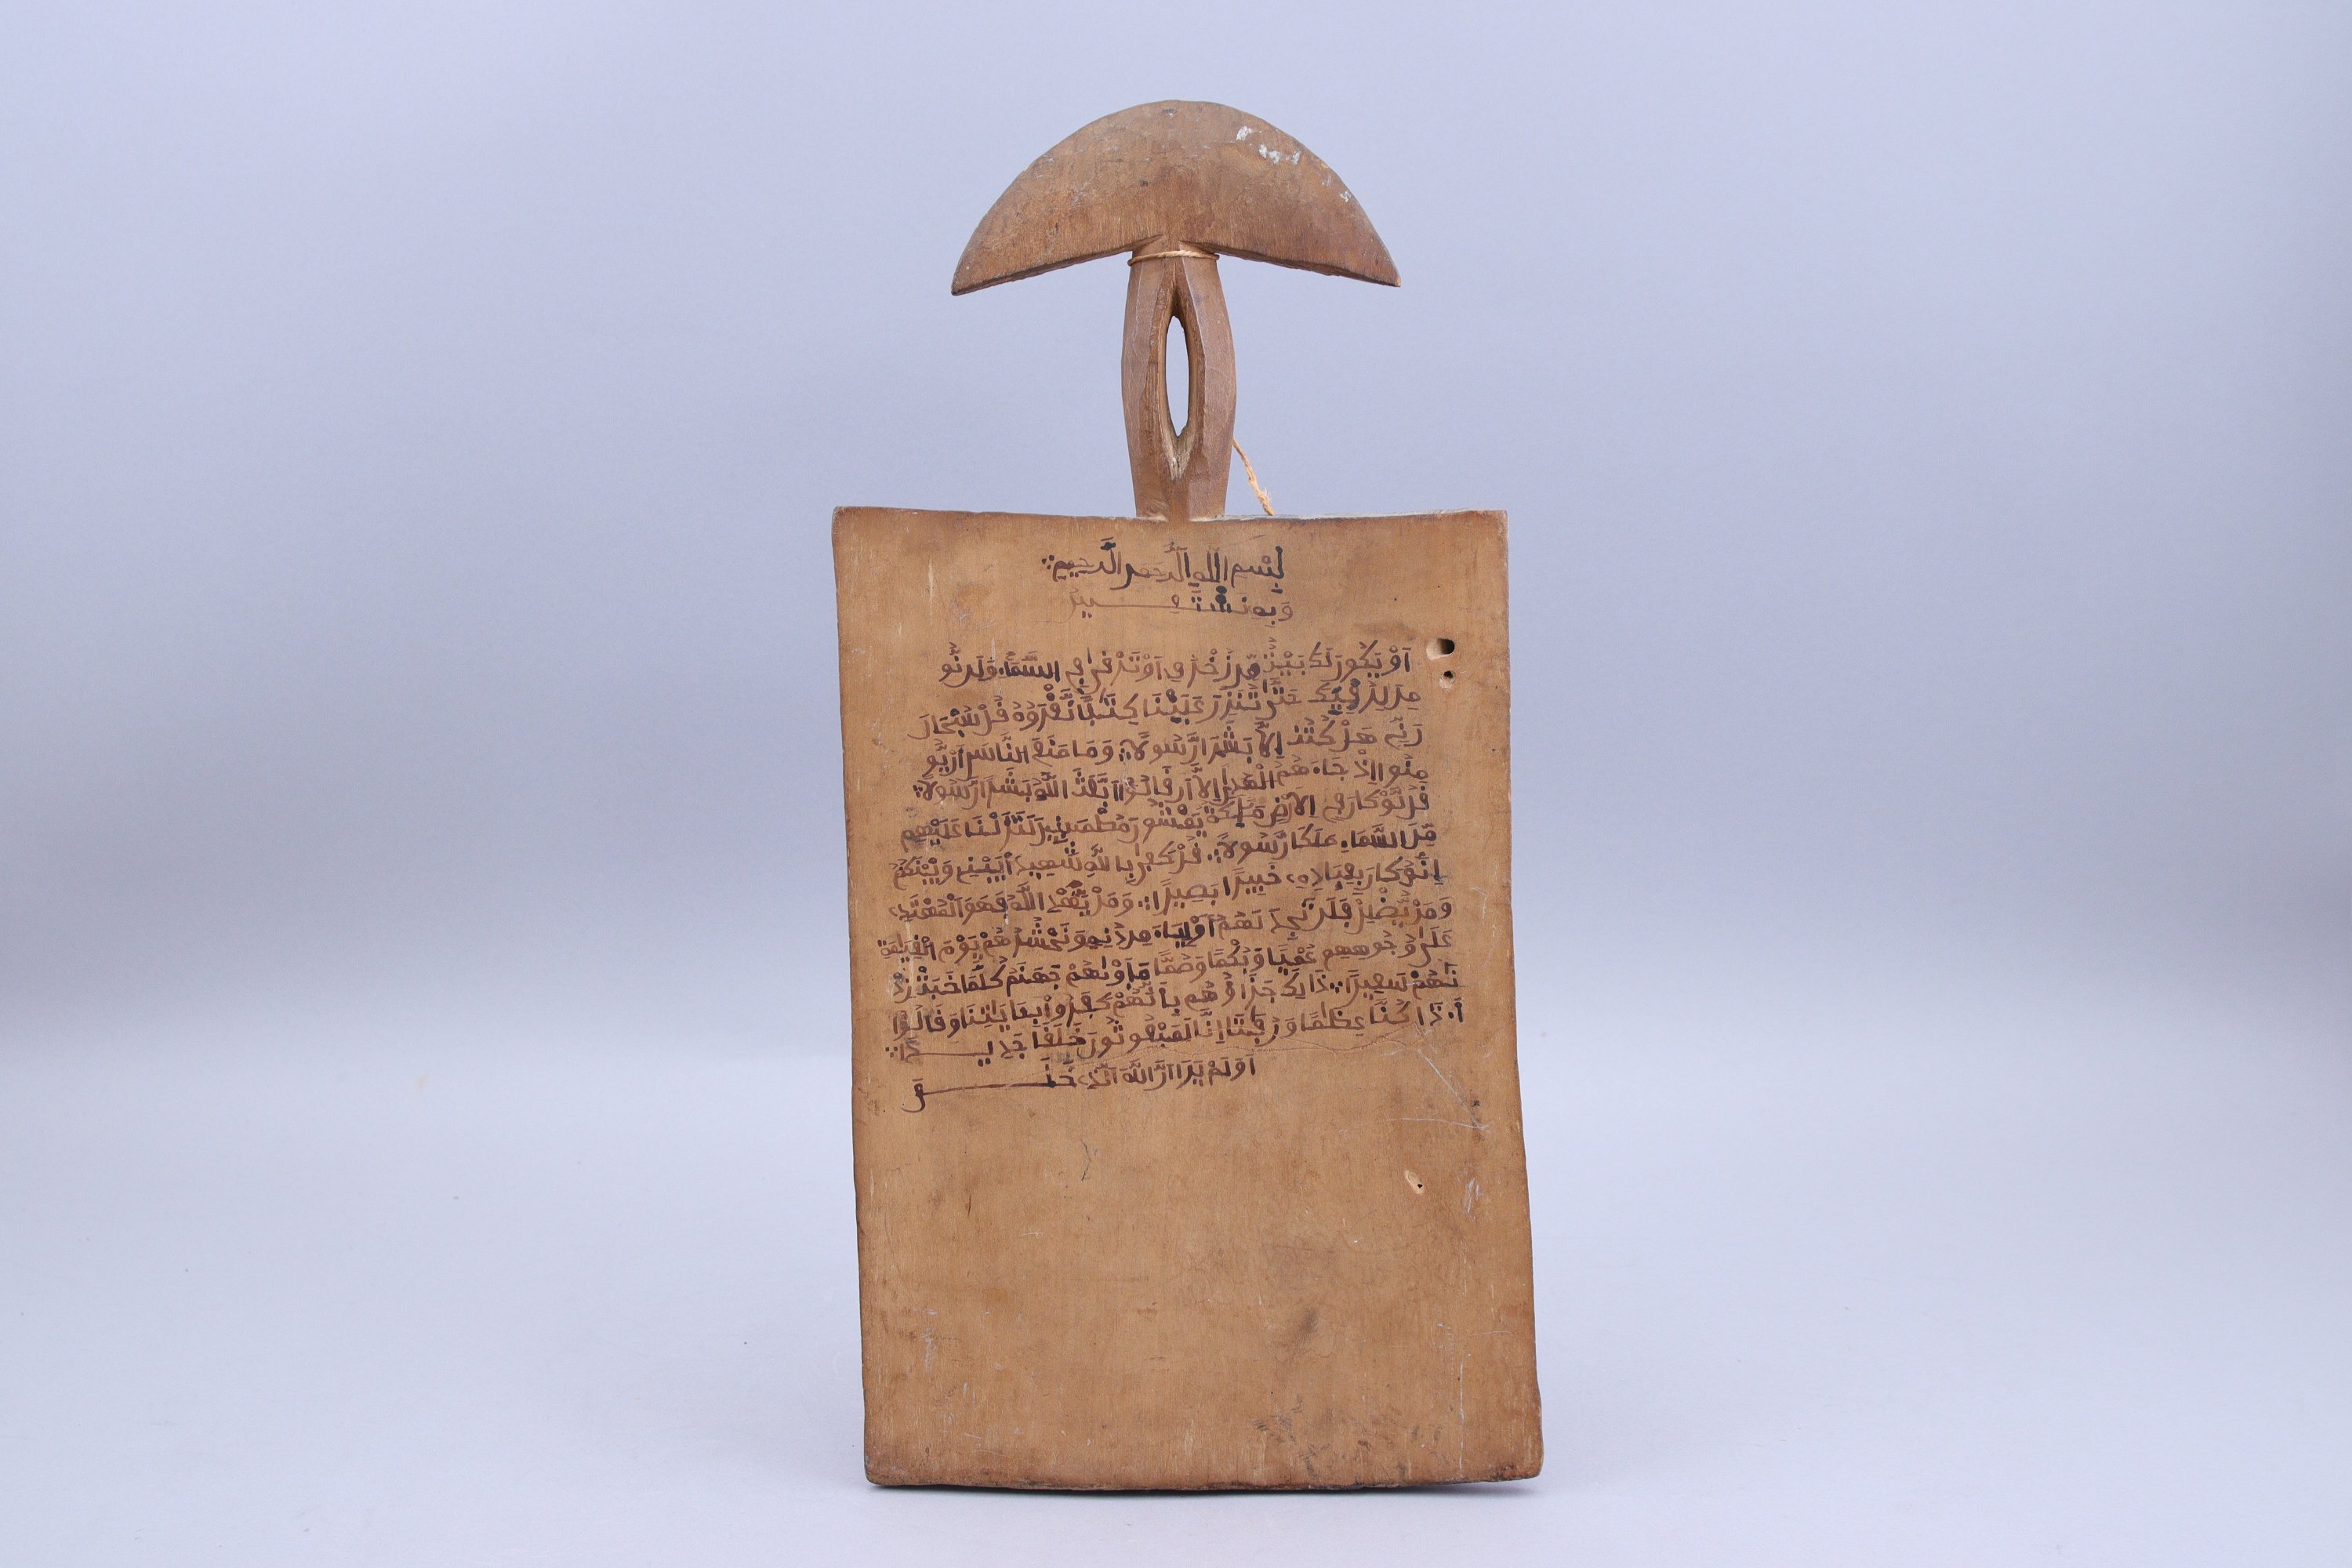 بِسْمِ اللهِ الرَّحْمَنِ الرَّحِيمِ
وَبِهِ نَسْتَعِينُ
اَوْ يَكُونَ لَكَ بَيْتٌ مِّن زُخْرُفٍ اَوْ تَرْفىٰ فِي السَّمَاءِ وَلَن نُّو
مِنَ لِرُفِيِّكَ حَتَّىٰ تُنَزِّلَ عَلَيْنَا كِتَٰباً نَّفْرَؤُهُ فُلْ سُبْحَانَ
رَبِّي هَلْ كُنتُ إِلاَّ بَشَراً رَّسُولاً وَمَا مَنَعَ النَّاسَ اَنْ يُّو
مِنُوا إِذْ جَاءَهُمُ الْهُدىٰ إِلاَّ أَن فَالُوا اَبَعَثَ اللَّهُ بَشَراً رَّسُولاً
فُل لَّوْ كَانَ فِي الاَرْضِ مَلَٰئِكَةٌ يَمْشُونَ مُطْمَئِنِّينَ لَنَزَّلْنَا عَلَيْهِم
مِّنَ السَّمَاءِ مَلَكاً رَّسُولاً فُلْ كَفىٰ بِاللَّهِ شَهِيداً بَيْنِي وَبَيْنَكُمُ
إِنَّهُ كَانَ بِعِبَادِهِ خَبِيراً بَصِيراً وَمَنْ يَّهْدِ اللَّهُ فَهُوَ الْمُهْتَدِ
وَمَنْ يُّضْلِلْ فَلَن تَجِدَ لَهُمُ اَوْلِيَاءَ مِن دُونِهِ وَنَحْشُرُهُمْ يَوْمَ الْفِيَٰمَةِ
عَلَىٰ وُجُوهِهِمْ عُمْياً وَبُكْماً وَصُمّاً مَأْوَيٰهُمْ جَهَنَّمُ كُلَّمَا خَبَتْ زِدْ
نَٰهُمْ سَعِيراً ذَٰلِكَ جَزَاؤُهُم بِأَنَّهُمْ كَفَرُوا بِـَٔايَٰتِنَا وَفَالُوا
أَ.ذَا كُنَّا عِظَٰماً وَرُفَٰتاً إِنَّا لَمَبْعُوثُونَ خَلْفاً جَدِيداً
اَوَلَمْ يَرَوَا اَنَّ اللَّهَ الَّذِي خَلَقَ